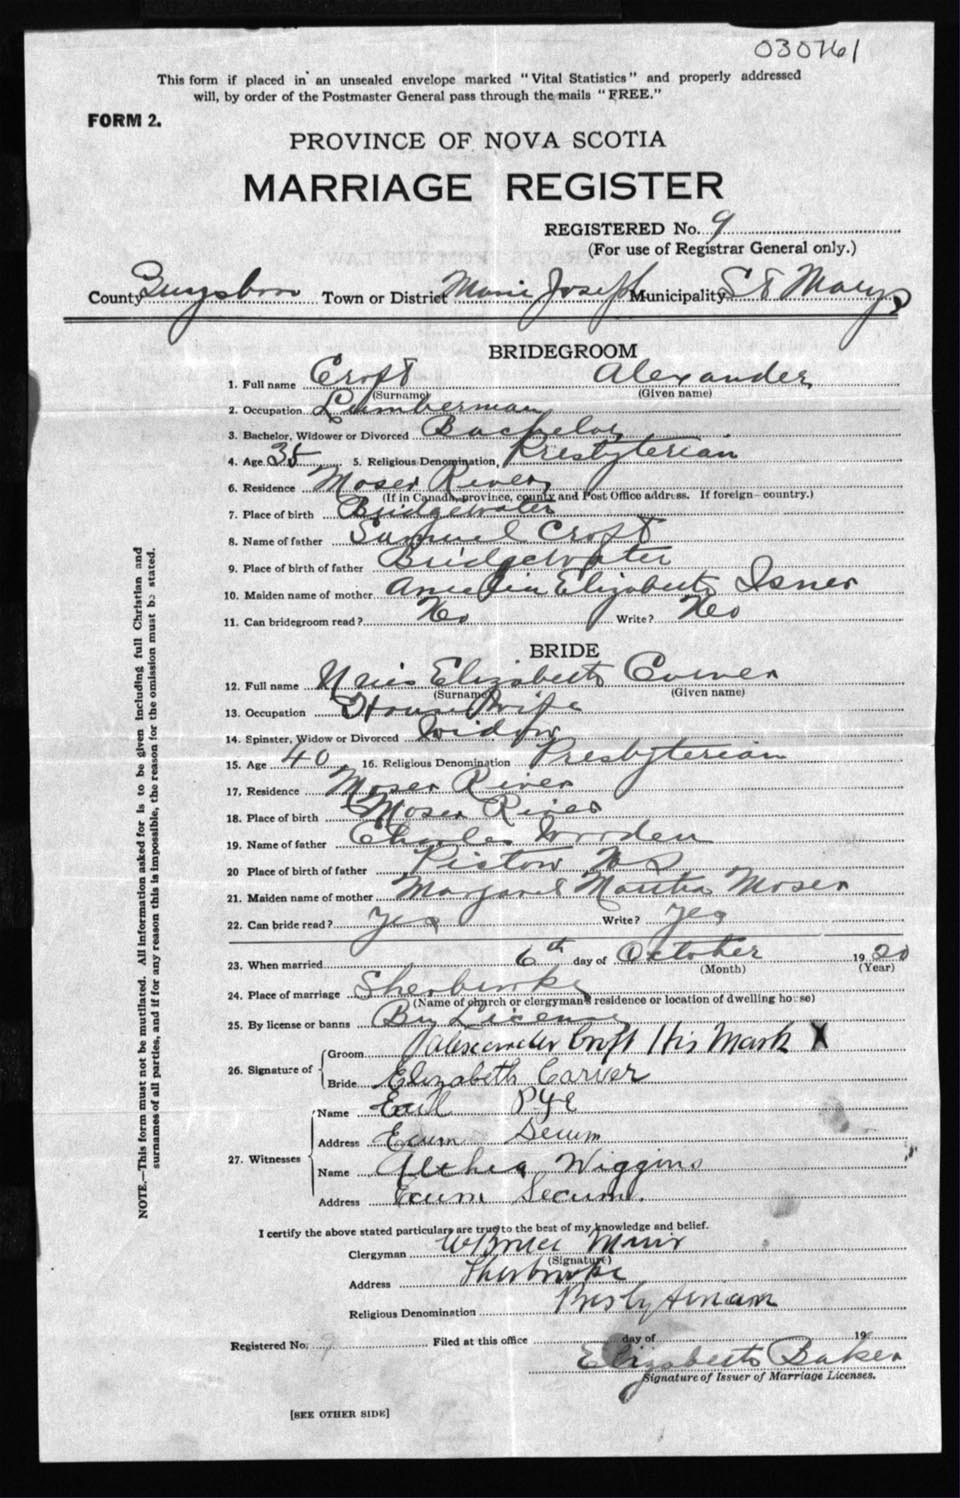 030761
This form if placed in an unsealed envelope marked "Vital Statistics" and properly addressed
will, by order of the Postmaster General pass through the mails "FREE."
FORM 2.
PROVINCE OF NOVA SCOTIA
MARRIAGE REGISTER
REGISTERED No. 9
(For use of Registrar General only.)
County Guysboro Town or District Marie Joseph Municipality St Marys
BRIDEGROOM
1. Full name Croft Alexander
(Surname) (Given name)
2. Occupation Lumberman
3. Bachelor, Widower or Divorced Bachelor
4. Age 35 5. Religious Denomination, Presbyterian
6. Residence Moser River
(If in Canada, province, county and Post Office address. If foreign—country.)
7. Place of birth Bridgewater
8. Name of father Samuel Croft
9. Place of birth of father Bridgewater
10. Maiden name of mother Elizabeth Isner
11. Can bridegroom read? No Write? No
BRIDE
12. Full name Elizabeth Carver
(Surname) (Given name)
13. Occupation House Wife
14. Spinster, Widow or Divorced Widow
15. Age 40 16. Religious Denomination Presbyterian
17. Residence Moser River
18. Place of birth Moser River
19. Name of father Charles Worden
20 Place of birth of father N S
21. Maiden name of mother Margaret Martha Moser
22. Can bride read? Yes Write? Yes
23. When married 6th day of October 1920
(Month) (Year)
24. Place of marriage Sherbrooke
(Name of church or clergyman's residence or location of dwelling house)
25. By license or banns By License
26. Signature of Groom Alexander Croft His Mark X
Bride Elizabeth Carver
27. Witnesses Name Earl Pye
Address Ecum Secum
Name Althea Wiggins
Address Ecum Secum.
I certify the above stated particulars are true to the best of my knowledge and belief.
Clergyman W Bruce Muir
(Signature)
Address Sherbrooke
Religious Denomination Presbyterian
Registered No. 9 Filed at this office day of 19
Elizabeth Baker
Signature of Issuer of Marriage Licenses.
[SEE OTHER SIDE]
NOTE.—This form must not be mutilated. All information asked for is to be given including full Christian and
surnames of all parties, and if for any reason this is impossible, the reason for the omission must be stated.